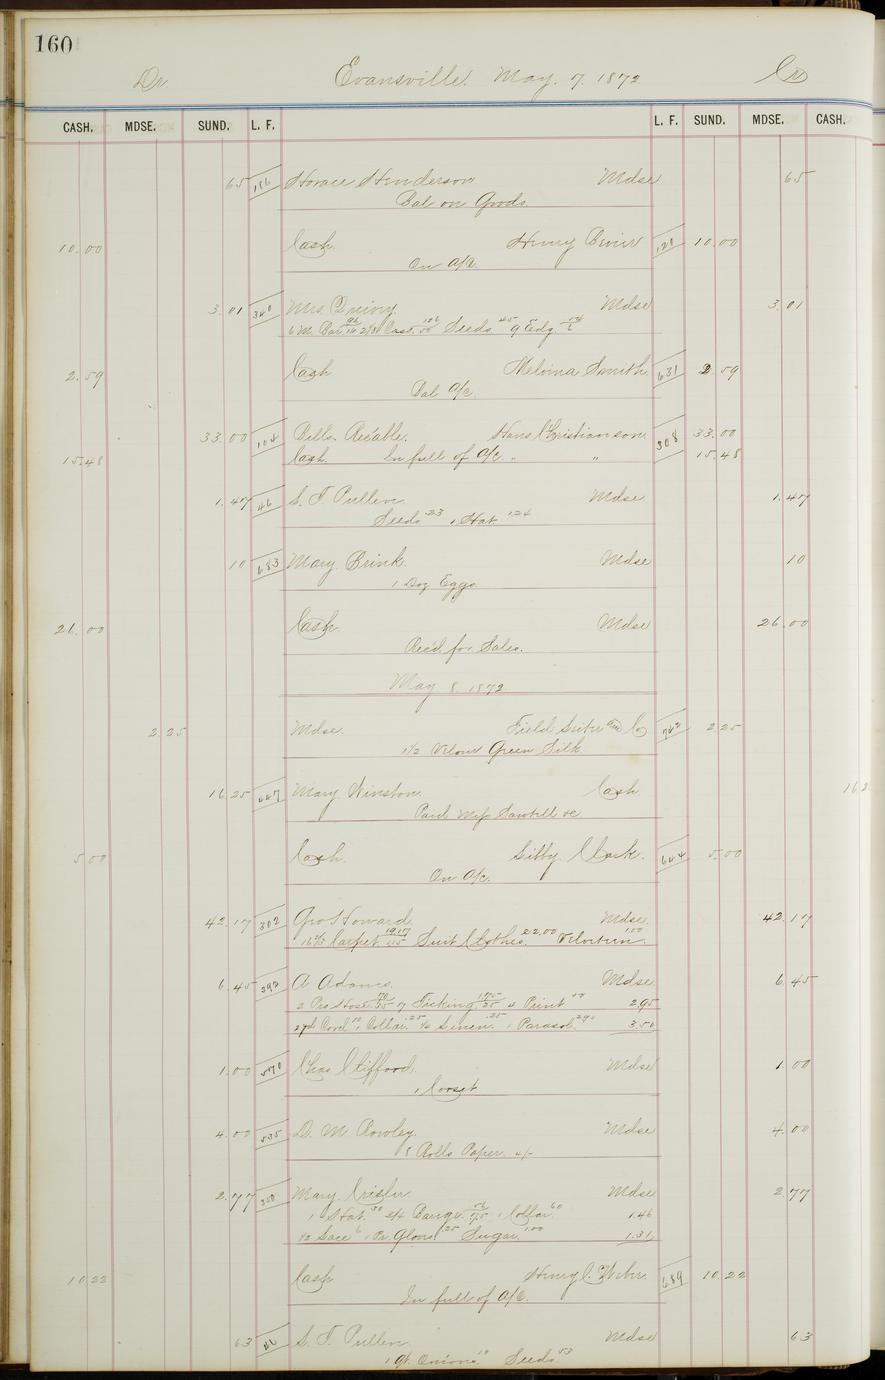 160
Dr. Evansville. May. 7. 1872 Cr
CASH. MDSE. SUND. L. F. L. F. SUND. MDSE. CASH.
65 186 Horace Henderson Mdse 65
Bal on Goods.
10.00 Cash. Henry 121 10.00
On a/c.
3.01 340 Mrs. Mdse 3.01
Seeds 45 9 Edg.
2.59 Cash Melvina Smith 631 2.59
Bal a/c.
33.00 104 Bills. Rec'able. Hans Christianson. 308 33.00
15.48 Cash. In full of a/c " " 15.48
1.47 46 S. T. Pullen. Mdse 1.47
Seeds 23 1 Hat. 1.24
10 683 Mary Brink. Mdse 10
1 Doz Eggs.
26.00 Cash. Mdse 26.00
Rec'd for Sales.
May 8 1872
2 25 Mdse. Field Leiter and Co 742 2.25
1 1/2 Velour Green Silk
16.25 447 Mary Winston. Cash 16 2
Paid Miss Sawtell &c
5 00 Cash. Libby Clark. 644 5.00
On a/c.
42.17 302 Geo Howard. Mdse. 42.17
16 2/3 Carpet 19.17 1.15 Suit Clothes. 22.00 1.00
6.45 392 A Adams. Mdse 6.45
2 Prs Hose 7 Ticking 1.75 25 4 Print 2.95
Collar. 25 Linen. 25 1 Parasol. 3.50
1.00 570 Chas Clifford. Mdse 1.00
1 Corset
4.00 535 D. M. Rowley. Mdse 4.00
8 Rolls Paper. 4/-
2.77 350 Mary Mdse 2.77
1 Hat. 1 Collar. 60 1.46
1/2 Lace 6 1 Pr. Gloves 25 Sugar. 1.00 1.31
10 22 Cash Henry C. 689 10.22
In full of a/c.
63 46 S. T. Pullen. Mdse 63
1 qt. Onions. 10 Seeds. 53